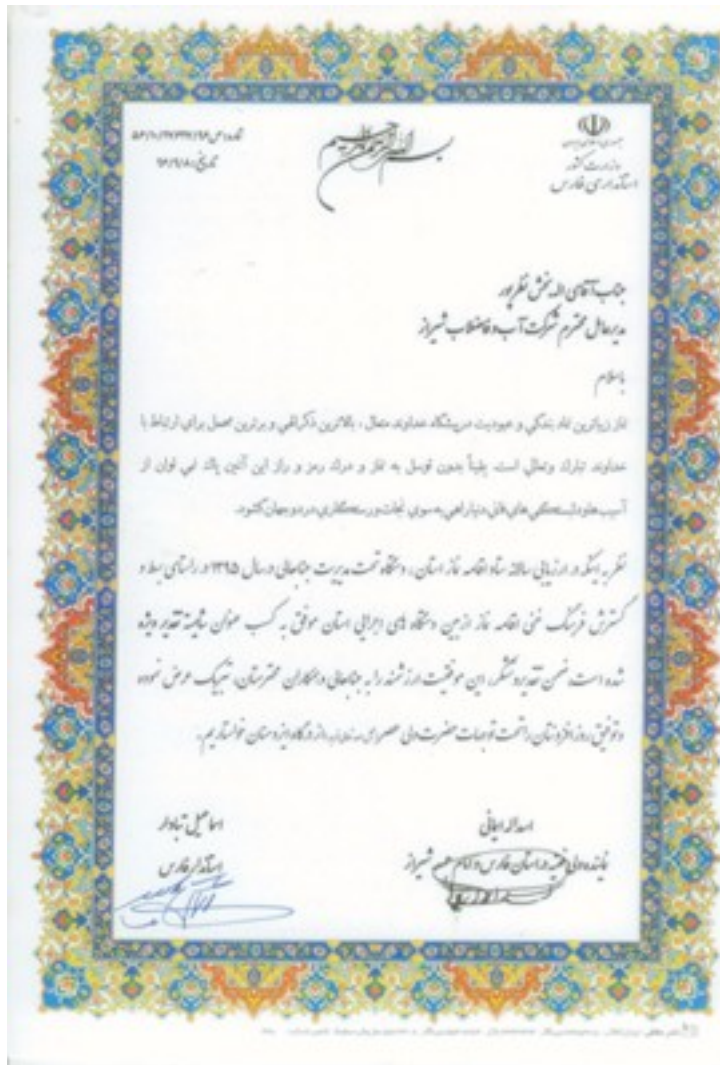 بسم الله الرحمن الرحیم
جمهوری اسلامی ایران
وزارت کشور
استانداری فارس
تاریخ: ۹۶/۹/۸
جناب آقای اله بخش نظرپور
مدیرعامل محترم شرکت آب و فاضلاب شیراز
با سلام
نماز زیباترین نماد بندگی و عبودیت در پیشگاه خداوند متعال، بالاترین ذکر الهی و برترین محمل برای ارتباط با
خداوند تبارک وتعالی است. یقیناً بدون توسل به نماز و درک رمز و راز این آئین پاک نمی توان از
آسیب ها و دلبستگی های فانی دنیا راهی به سوی نجات و رستگاری در دو جهان گشود.
نظر به اینکه در ارزیابی سالانه ستاد اقامه نماز استان، دستگاه تحت مدیریت جنابعالی در سال ۱۳۹۵ در راستای بسط و
گسترش فرهنگ غنی اقامه نماز از بین دستگاه های اجرایی استان موفق به کسب عنوان شایسته تقدیر ویژه
شده است، ضمن تقدیر و تشکر، این موفقیت ارزشمند را به جنابعالی و همکاران محترمتان، تبریک عرض نموده
و توفیق روزافزونتان را تحت توجهات حضرت ولی عصر از درگاه ایزد منان خواستاریم.
اسداله ایمانی
نماینده ولی فقیه در استان فارس و امام جمعه شیراز
اسماعیل تبادار
استاندار فارس